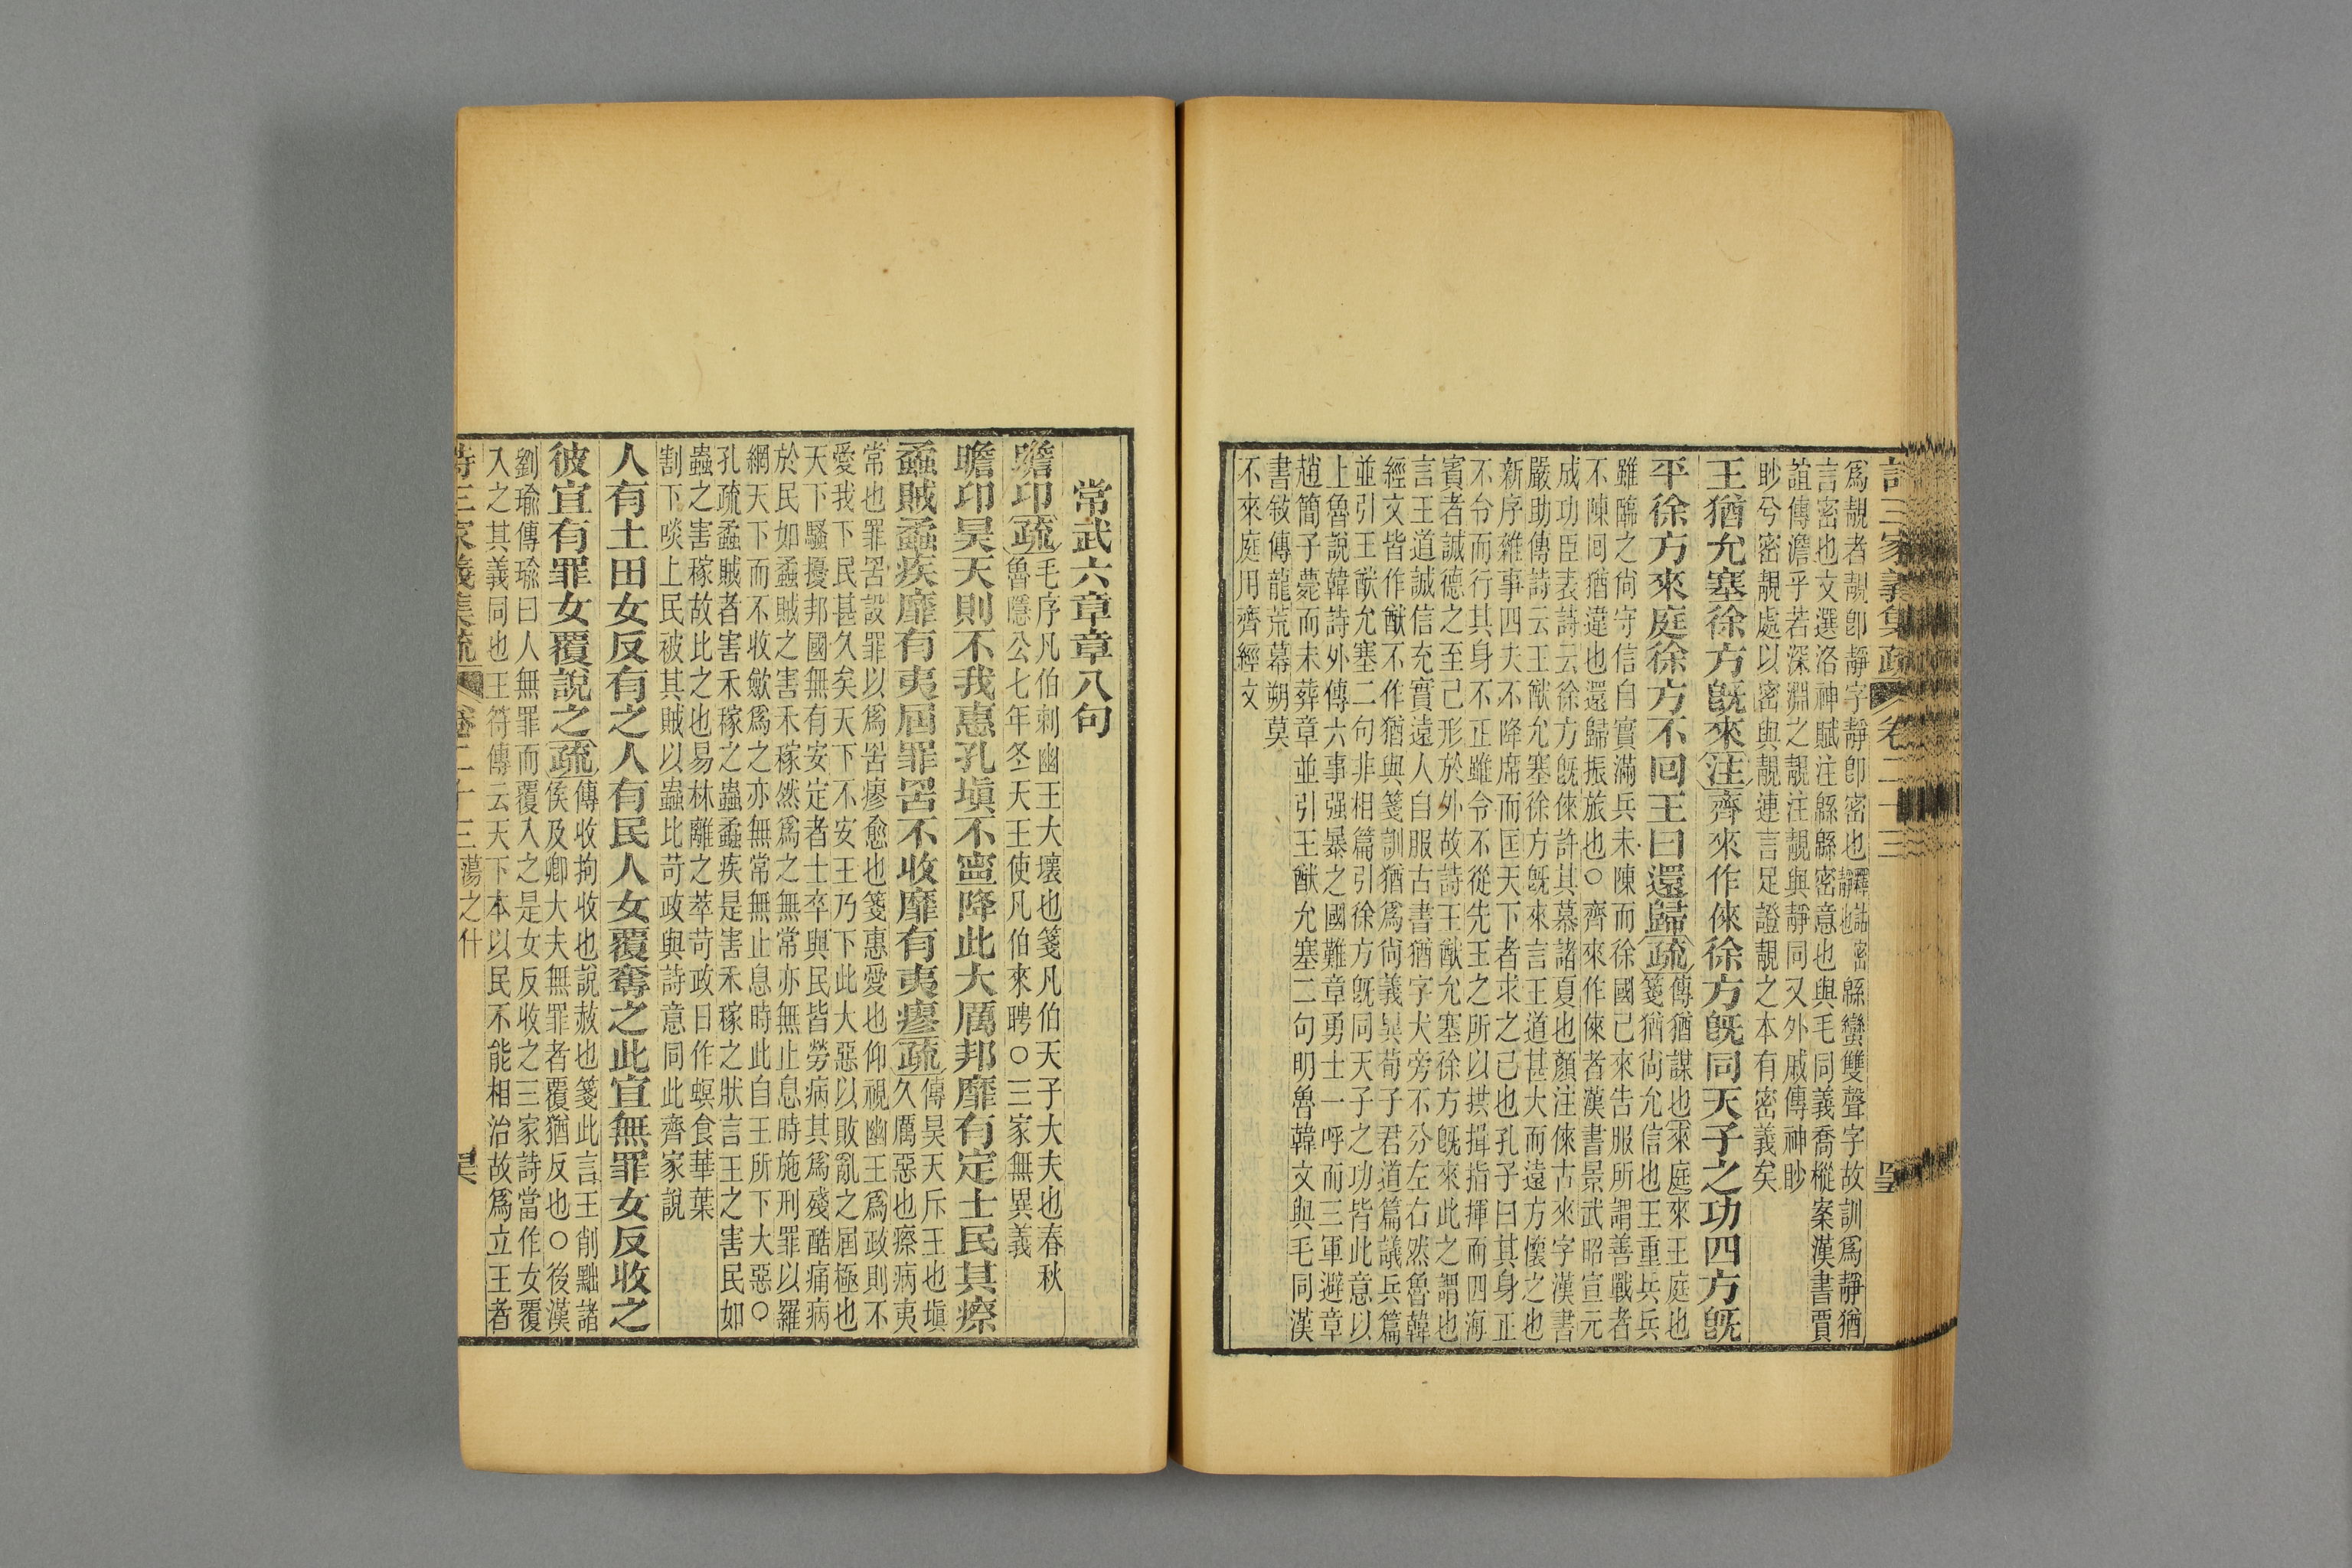 詩三家義集疏 卷二十三
爲靚者靚卽靜字靜卽密也釋詁密靜也緜蠻雙聲字故訓爲靜猶
言密也文選洛神賦注緜緜密意也與毛同義喬樅案漢書賈
誼傳澹乎若深淵之靚注靚與靜同又外戚傳神眇
眇兮密靚處以密與靚連言足證靚之本有密義矣
王猶允塞徐方旣來注齊來作倈徐方旣同天子之功四方旣
平徐方來庭徐方不回王曰還歸疏傳猶謀也來庭來王庭也
箋猶尙允信也王重兵兵
雖臨之尙守信自實滿兵未陳而徐國已來告服所謂善戰者
不陳回猶違也還歸振旅也○齊來作倈者漢書景武昭宣元
成功臣表詩云徐方旣倈許其慕諸夏也顏注倈古來字漢書
嚴助傳詩云王猷允塞徐方旣來言王道甚大而遠方懷之也
新序雜事四夫不降席而匡天下者求之己也孔子曰其身正
不令而行其身不正雖令不從先王之所以拱揖指揮而四海
賓者誠德之至已形於外故詩王猷允塞徐方旣來此之謂也
言王道誠信充實遠人自服古書猶字犬旁不分左右然魯韓
經文皆作猷不作猶與箋訓猶爲尙義異荀子君道篇議兵篇
並引王猷允塞二句非相篇引徐方旣同天子之功皆此意以
上魯說韓詩外傳六事强暴之國難章勇士一呼而三軍避章
趙簡子薨而未葬章並引王猷允塞二句明魯韓文與毛同漢
書敍傳龍荒幕朔莫
不來庭用齊經文
常武六章章八句
瞻卬疏毛序凡伯刺幽王大壞也箋凡伯天子大夫也春秋
魯隱公七年冬天王使凡伯來聘○三家無異義
瞻卬昊天則不我惠孔塡不寧降此大厲邦靡有定士民其瘵
蟊賊蟊疾靡有夷屆罪罟不收靡有夷瘳疏傳昊天斥王也塡
久厲惡也瘵病夷
常也罪罟設罪以爲罟瘳愈也箋惠愛也仰視幽王爲政則不
愛我下民甚久矣天下不安王乃下此大惡以敗亂之屆極也
天下騷擾邦國無有安定者士卒與民皆勞病其爲殘酷痛病
於民如蟊賊之害禾稼然爲之無常亦無止息時施刑罪以羅
網天下而不收歛爲之亦無常無止息時此自王所下大惡○
孔疏蟊賊者害禾稼之蟲蟊疾是害禾稼之狀言王之害民如
蟲之害稼故比之也易林離之萃苛政日作螟食華葉
割下啖上民被其賊以蟲比苛政與詩意同此齊家說
人有土田女反有之人有民人女覆奪之此宜無罪女反收之
彼宜有罪女覆說之疏傳收拘收也說赦也箋此言王削黜諸
侯及卿大夫無罪者覆猶反也○後漢
劉瑜傳瑜曰人無罪而覆入之是女反收之三家詩當作女覆
入之其義同也王符傳云天下本以民不能相治故爲立王者
詩三家義集疏 卷二十三 蕩之什